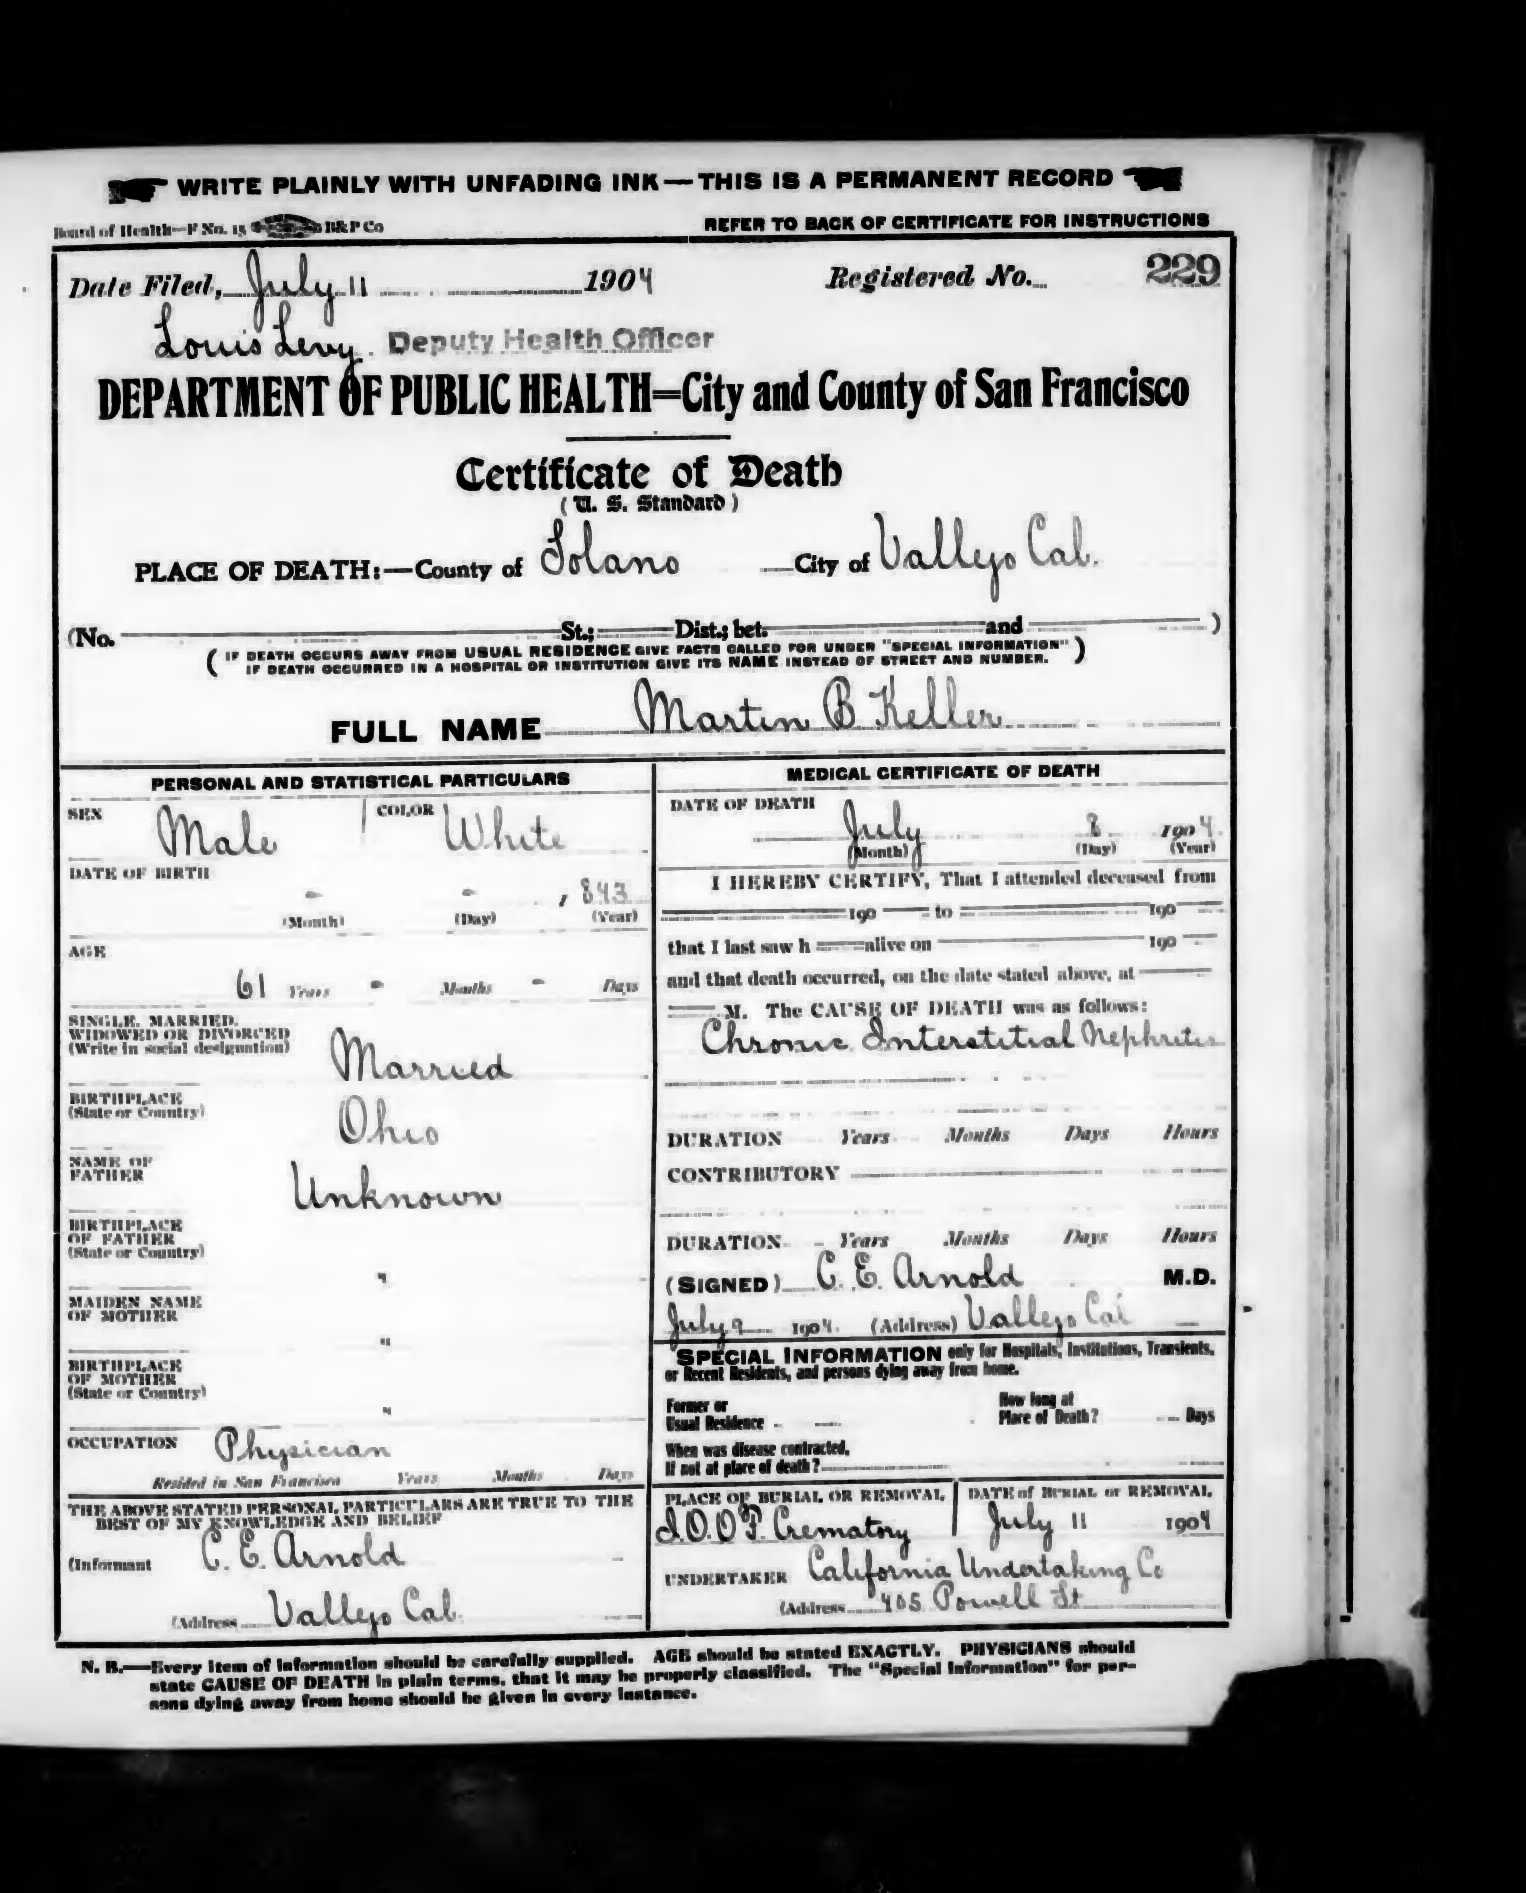 WRITE PLAINLY WITH UNFADING INK—THIS IS A PERMANENT RECORD
Board of Health—F No. 15 B&P Co
REFER TO BACK OF CERTIFICATE FOR INSTRUCTIONS
Date Filed, July 11 1904 Registered No. 229
Louis Levy. Deputy Health Officer
DEPARTMENT OF PUBLIC HEALTH=City and County of San Francisco
Certificate of Death
(U. S. Standard)
PLACE OF DEATH:—County of Solano City of Vallejo Cal.
(No. St.; Dist.; bet. and )
(IF DEATH OCCURS AWAY FROM USUAL RESIDENCE GIVE FACTS CALLED FOR UNDER "SPECIAL INFORMATION"
IF DEATH OCCURRED IN A HOSPITAL OR INSTITUTION GIVE ITS NAME INSTEAD OF STREET AND NUMBER.)
FULL NAME Martin B Keller
PERSONAL AND STATISTICAL PARTICULARS
SEX Male COLOR White
DATE OF BIRTH
- - , 843
(Month) (Day) (Year)
AGE
61 Years - Months - Days
SINGLE, MARRIED,
WIDOWED OR DIVORCED
(Write in social designation) Married
BIRTHPLACE
(State or Country) Ohio
NAME OF
FATHER Unknown
BIRTHPLACE
OF FATHER
(State or Country)
"
MAIDEN NAME
OF MOTHER
"
BIRTHPLACE
OF MOTHER
(State or Country)
"
OCCUPATION Physician
Resided in San Francisco Years Months Days
THE ABOVE STATED PERSONAL PARTICULARS ARE TRUE TO THE
BEST OF MY KNOWLEDGE AND BELIEF
(Informant C. E. Arnold
(Address Vallejo Cal.
MEDICAL CERTIFICATE OF DEATH
DATE OF DEATH
July 8 1904
(Month) (Day) (Year)
I HEREBY CERTIFY, That I attended deceased from
190 to 190
that I last saw h alive on 190
and that death occurred, on the date stated above, at
M. The CAUSE OF DEATH was as follows:
Chronic Interstitial Nephritis
DURATION Years Months Days Hours
CONTRIBUTORY
DURATION Years Months Days Hours
(SIGNED) C. E. Arnold M.D.
July 9 1904. (Address) Vallejo Cal
SPECIAL INFORMATION only for Hospitals, Institutions, Transients,
or Recent Residents, and persons dying away from home.
Former or
Usual Residence
How long at
Place of Death? Days
When was disease contracted,
If not at place of death?
PLACE OF BURIAL OR REMOVAL DATE of BURIAL or REMOVAL
I.O.O.F. Crematory July 11 1904
UNDERTAKER California Undertaking Co
(Address 405 Powell St
N. B.—Every item of information should be carefully supplied. AGE should be stated EXACTLY. PHYSICIANS should
state CAUSE OF DEATH in plain terms, that it may be properly classified. The "Special Information" for per-
sons dying away from home should be given in every instance.